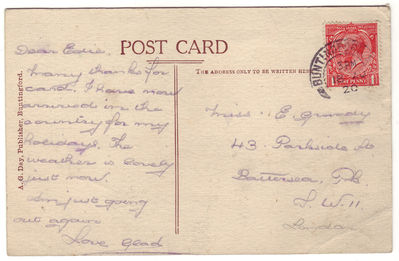 POST CARD
THE ADDRESS ONLY TO BE WRITTEN HERE
A. G. Day, Publisher, Buntingford.
Dear Edie.
Many thanks for
card. I have now
arrived in the
country for my
holidays. The
weather is lovely
just now.
Am just going
out again
Love Glad
Miss E. Grundy
43 Parkside St
Battersea Pk
S. W. 11
London
BUNTINGF
SP
20
1 PENNY 1